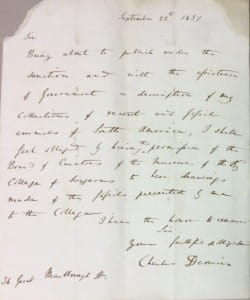 September 23d 1837
Sir
Being about to publish under the
sanction and with the assistance
of Government a description of my
Collections of recent and fossil
animals of South America, I shall
feel obliged by having the permission of the
Board of Curators of the Museum of the
College of Surgeons to have drawings
made of the fossils presented by me
to the College.
I have the honor to remain
Sir
Your faithful &
Charles Darwin
36 Great Marlborough St.